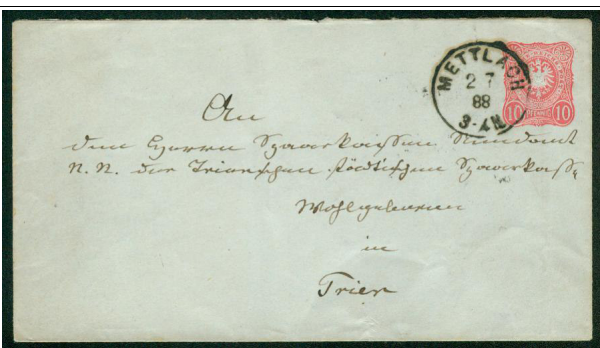 METTLACH
2 7
88
3-4N
10 PFENNIG 10
An
den Herrn Sparkassen Rendant
N. N. der Trierschen städtischen Sparkasse
Wohlgeboren
in
Trier